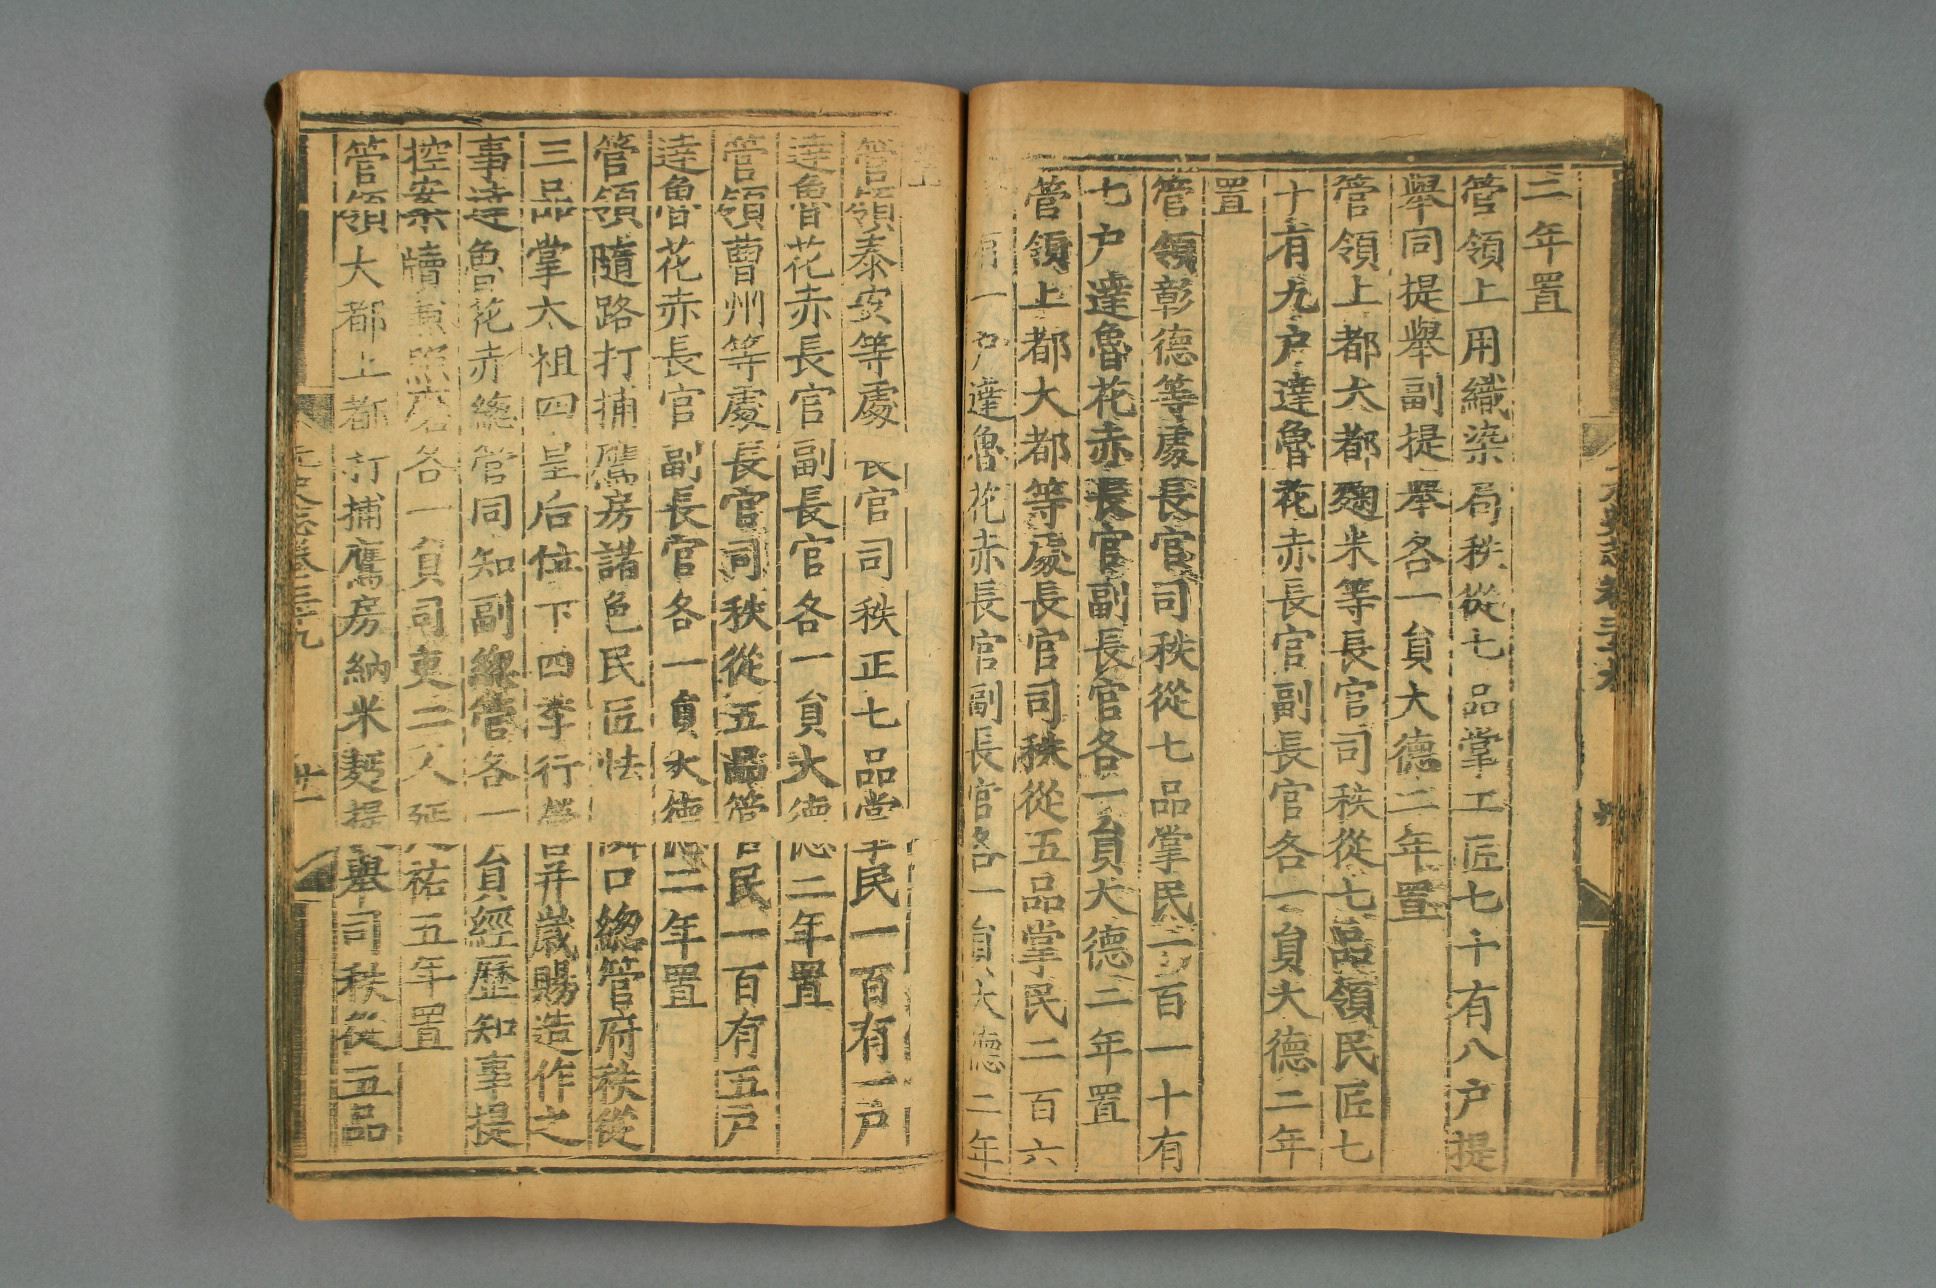 三年置
管領上用織染局秩從七品掌工匠七十有八户提
舉同提舉副提舉各一貟大德二年置
管領上都大都麴米等長官司秩從七品領民匠七
十有九户達魯花赤長官副長官各一貟大德二年
置
管領彰德等處長官司秩從七品掌民一百一十有
七户達魯花赤長官副長官各一貟大德二年置
管領上都大都等處長官司秩從五品掌民二百六
户達魯花赤長官副長官各一貟大德二年
置
管領泰安等處長官司秩正七品掌民一百有一户
達魯花赤長官副長官各一貟大德二年置
管領曹州等處長官司秩從五品管民一百有五户
達魯花赤長官副長官各一貟大德二年置
管領隨路打捕鷹房諸色民匠怯憐口緫管府秩從
三品掌太祖四皇后位下四季行營并歲賜造作之
事達魯花赤緫管同知副緫管各一貟經歷知事提
控案牘兼照磨各一貟司吏二人延祐五年置
管領大都上都打捕鷹房納米麪提舉司秩從五品
元史志卷三十九
廿一